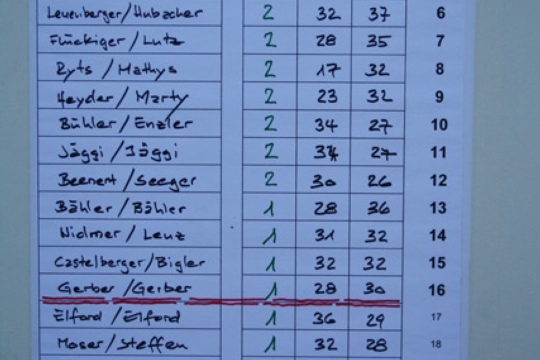 Leuenberger/Hubacher 2 32 37 6
Flückiger/Lutz 2 28 35 7
Ryts/Mathys 2 17 32 8
Heyder/Marty 2 23 32 9
Bühler/Enzler 2 34 27 10
Jäggi/Jäggi 2 34 27 11
Beenert/Seeger 2 30 26 12
Bähler/Bähler 1 28 36 13
Widmer/Lenz 1 31 32 14
Castelberger/Bigler 1 32 32 15
Gerber/Gerber 1 28 30 16
Elford/Elford 1 36 29 17
Moser/Steffen 1 32 28 18